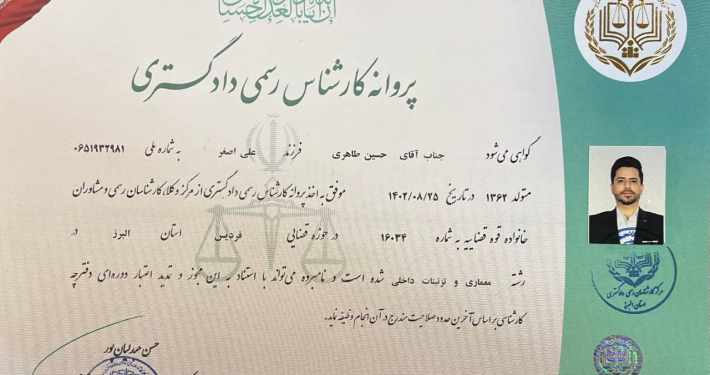 پروانه کارشناس رسمی دادگستری
گواهی می‌شود جناب آقای حسین طاهری فرزند علی اصغر به شماره ملی ۰۶۵۱۹۳۲۹۸۱
متولد ۱۳۶۲ در تاریخ ۱۴۰۲/۰۸/۲۵ موفق به اخذ پروانه کارشناس رسمی دادگستری از مرکز وکلا، کارشناسان رسمی و مشاوران
خانواده قوه قضاییه به شماره ۱۶۰۳۴ در حوزه قضایی فردیس استان البرز در
رشته معماری و تزئینات داخلی شده است و نامبرده می‌تواند با استناد به این مجوز و تمدید اعتبار دوره‌ای دفترچه
کارشناسی بر اساس آخرین حدود صلاحیت مندرج در آن انجام وظیفه نماید.
حسن عبدلیان پور
مرکز کارشناسان رسمی دادگستری
استان البرز